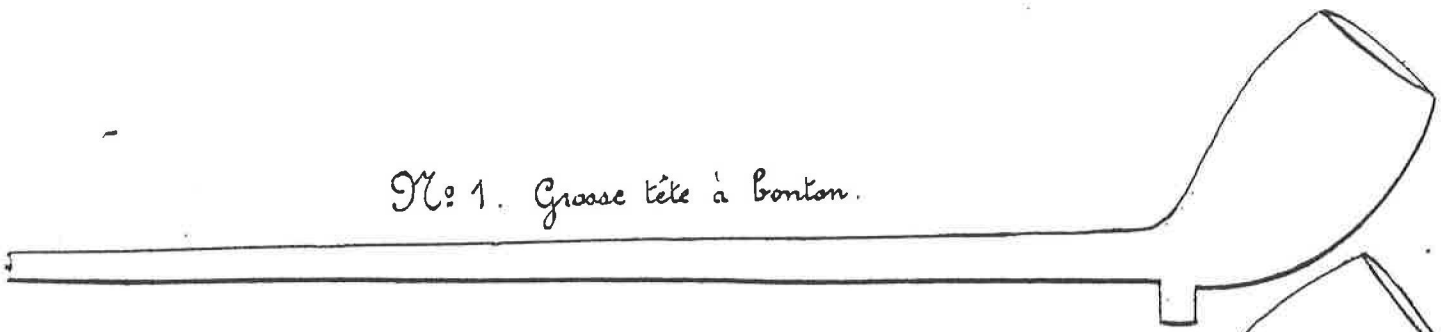 Nº 1. Grosse tête à bouton.